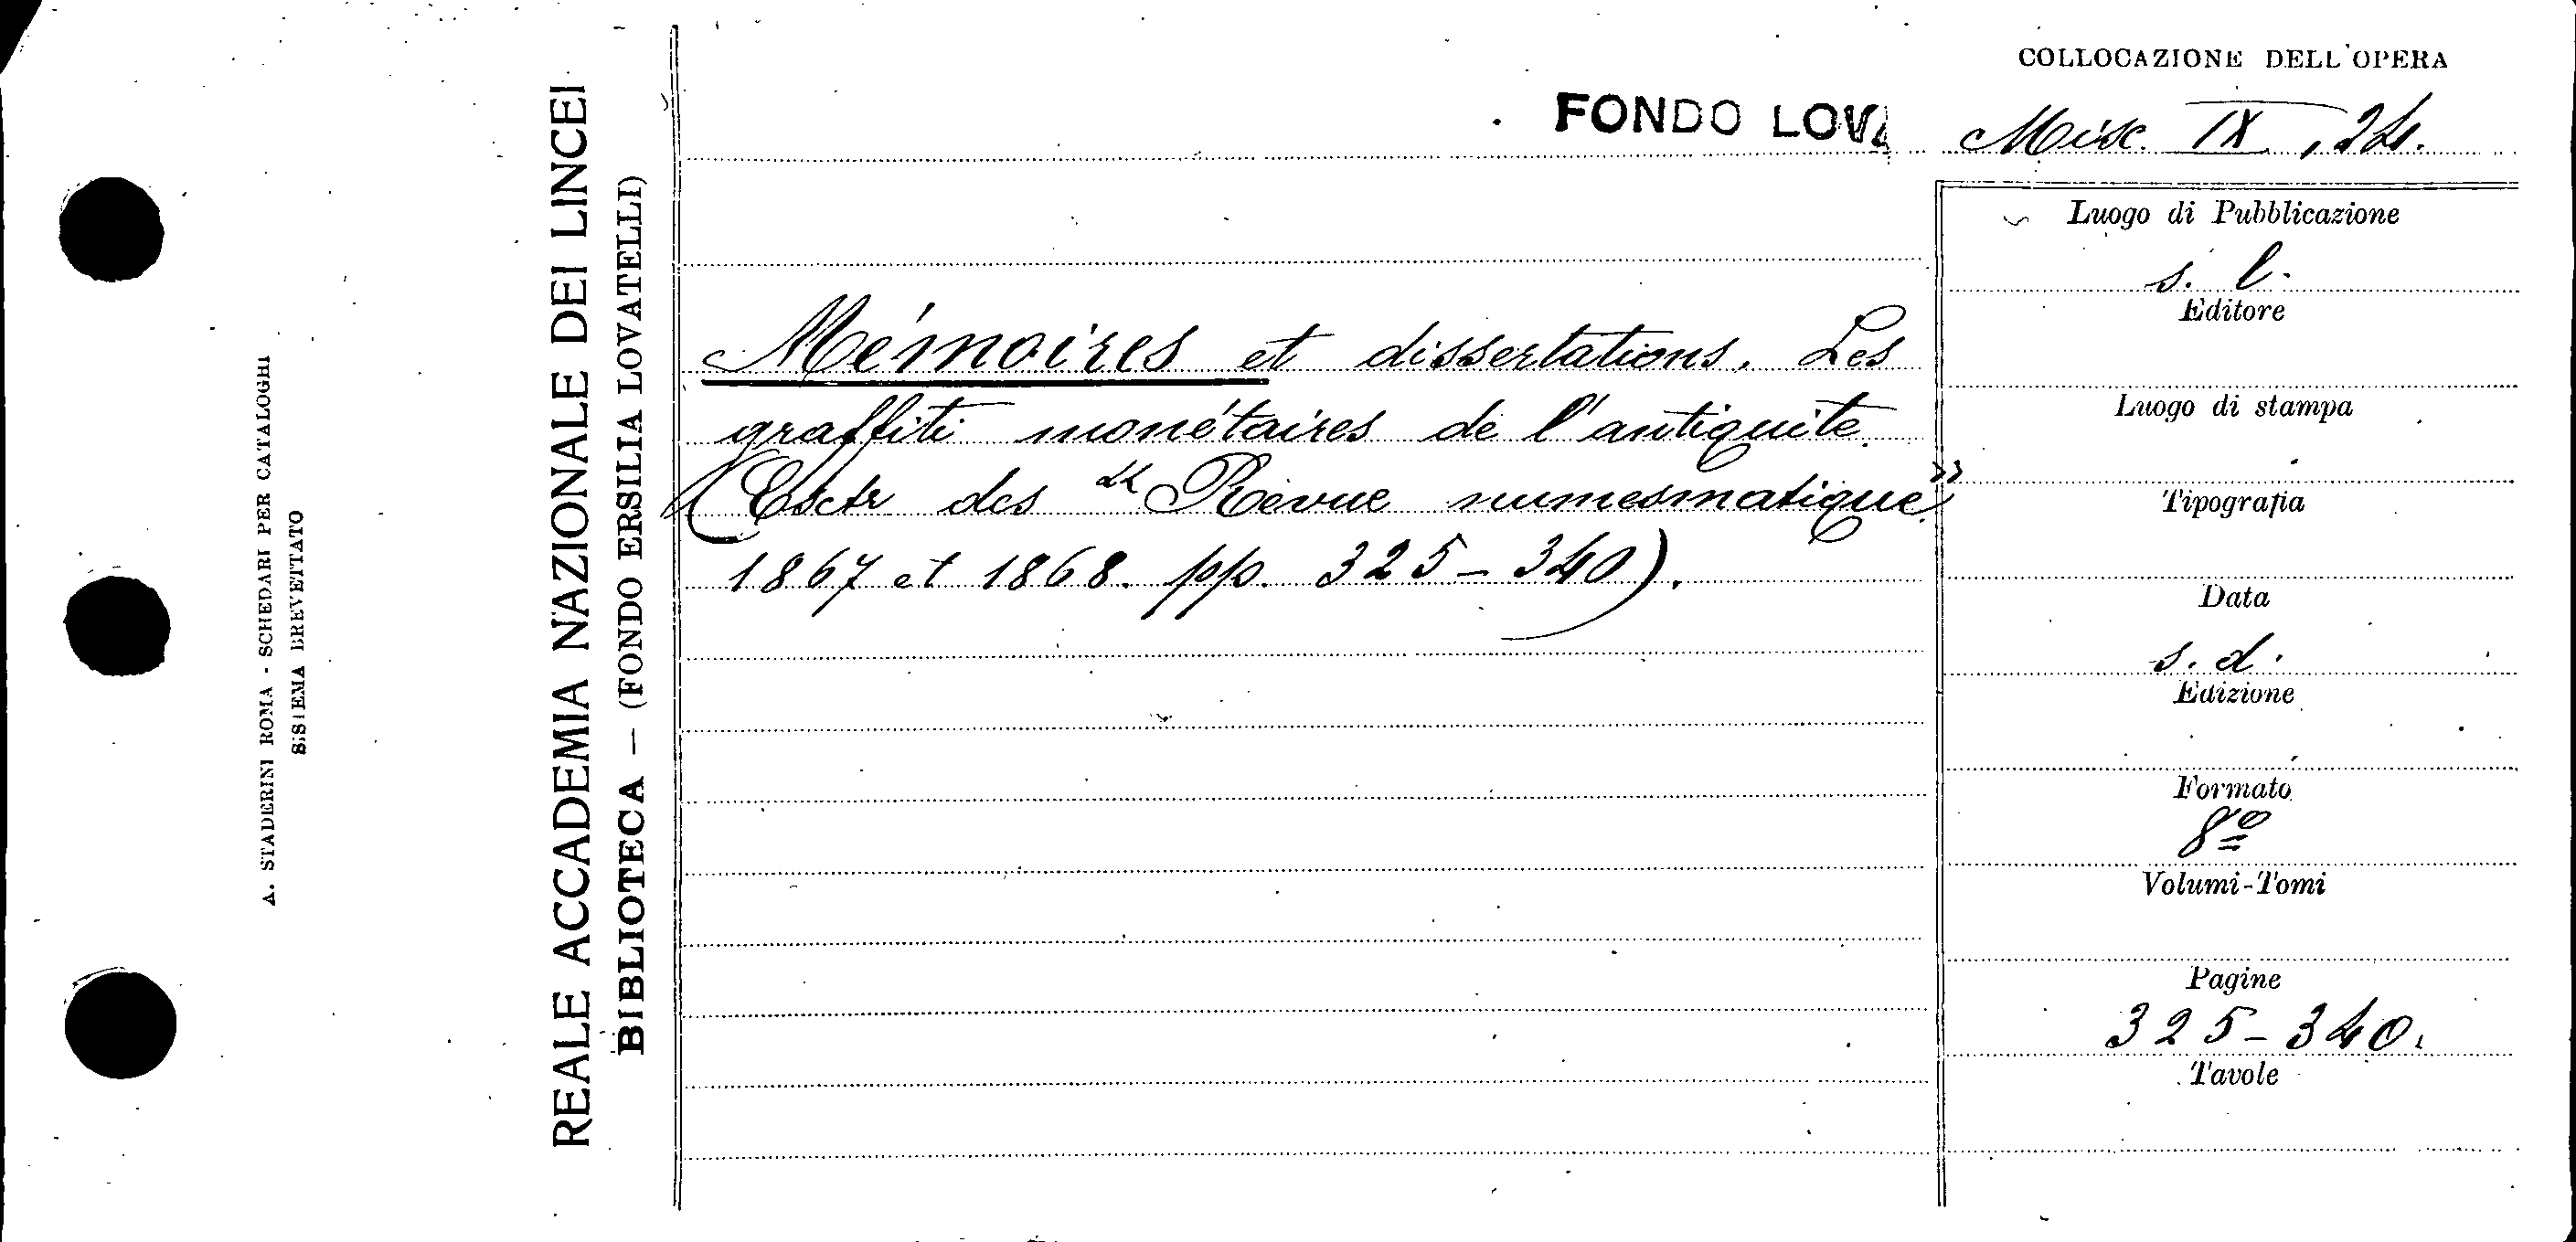 A. STADERINI ROMA - SCHEDARI PER CATALOGHI
SISTEMA BREVETTATO
REALE ACCADEMIA NAZIONALE DEI LINCEI
BIBLIOTECA — (FONDO ERSILIA LOVATELLI)
COLLOCAZIONE DELL'OPERA
FONDO LOVA
Misc. IX, 24.
Mémoires et dissertations. Les
graffiti monétaires de l'antiquité.
(Estr des "Revue numesmatique"
1867 et 1868. pp. 325-340).
Luogo di Pubblicazione
s. l.
Editore
Luogo di stampa
Tipografia
Data
s. d.
Edizione
Formato
8º
Volumi-Tomi
Pagine
325-340.
Tavole